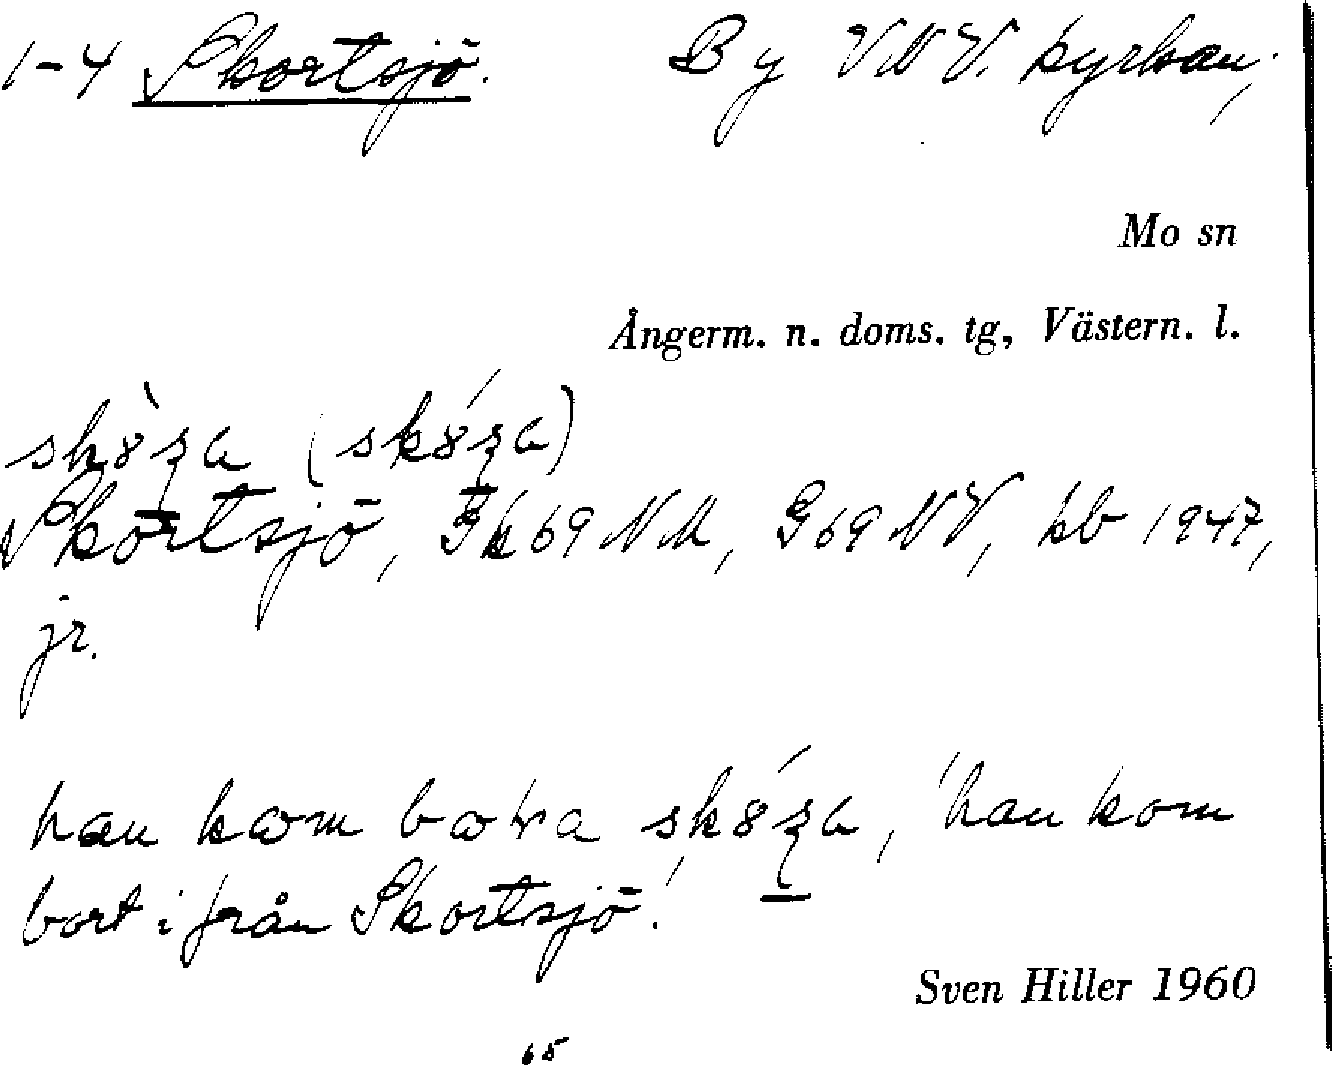 1-4 Skortsjö. By VNV. kyrkan;
Mo sn
Ångerm. n. doms. tg, Västern. l.
Skortsjö, Gk 69 NM, G 69 NV, kb 1947,
jr.
han kom bara, 'han kom
bort ifrån Skortsjö'.
Sven Hiller 1960
65